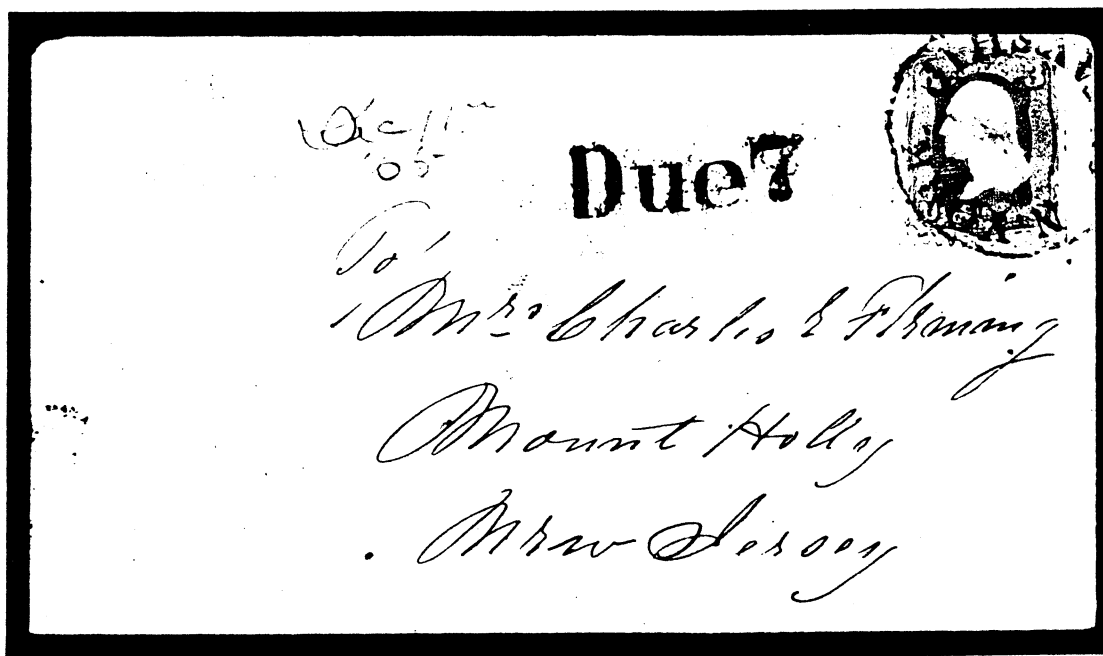 Dec 11th
'55
Due 7
To
Mrs Charles E Fleming
Mount Holly
New Jersey